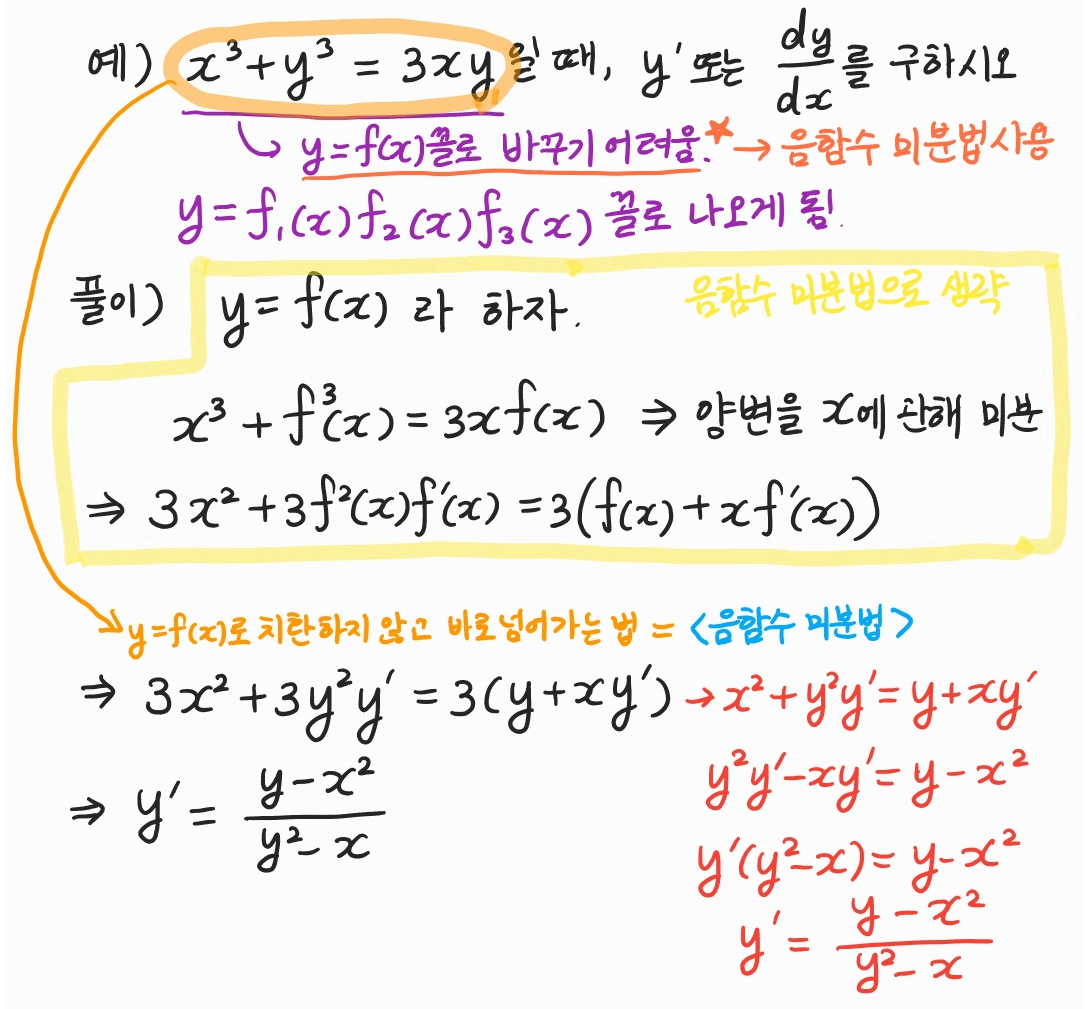 예) x³+y³ = 3xy 일 때, y' 또는 dy/dx를 구하시오
↳ y=f(x)꼴로 바꾸기 어려움.★→ 음함수 미분법사용
y=f₁(x)f₂(x)f₃(x) 꼴로 나오게 됨!
풀이) y=f(x) 라 하자. 음함수 미분법으로 생략
x³+f³(x)=3xf(x) ⇒ 양변을 x에 관해 미분
⇒ 3x²+3f²(x)f'(x)=3(f(x)+xf'(x))
y=f(x)로 치환하지 않고 바로넘어가는 법 = <음함수 미분법>
⇒ 3x²+3y²y' = 3(y+xy') → x²+y²y'=y+xy'
y²y'-xy'=y-x²
⇒ y' = (y-x²)/(y²-x)
y'(y²-x)=y-x²
y' = (y-x²)/(y²-x)